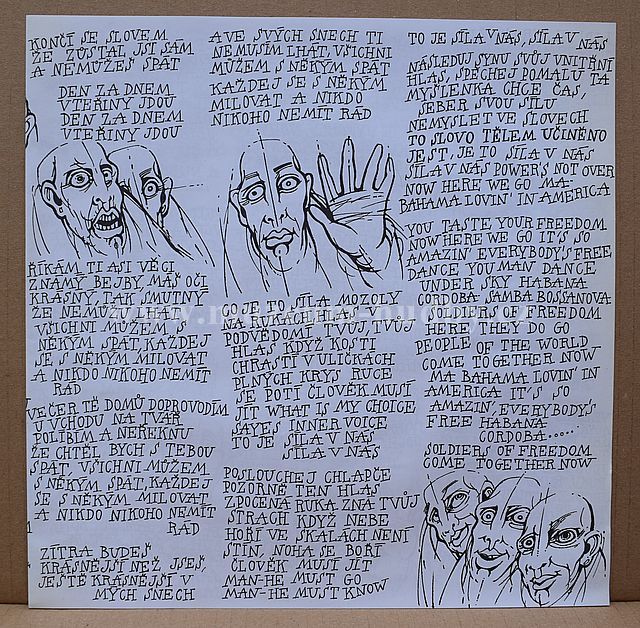 KONČÍ SE SLOVEM
ŽE ZŮSTAL JSI SÁM
A NEMŮŽEŠ SPÁT
DEN ZA DNEM
VTEŘINY JDOU
DEN ZA DNEM
VTEŘINY JDOU
ŘÍKÁM TI ASI VĚCI
ZNÁMÝ BEJBY, MÁŠ OČI
KRÁSNÝ, TAK SMUTNÝ
ŽE NEMŮŽU LHÁT
VŠICHNI MŮŽEM S
NĚKÝM SPÁT, KAŽDEJ
SE S NĚKÝM MILOVAT
A NIKDO NIKOHO NEMÍT
RÁD
VEČER TĚ DOMŮ DOPROVODÍM
U VCHODU NA TVÁŘ
POLÍBIM A NEŘEKNU
ŽE CHTĚL BYCH S TEBOU
SPÁT, VŠICHNI MŮŽEM
S NĚKÝM SPÁT, KAŽDEJ
SE S NĚKÝM MILOVAT
A NIKDO NIKOHO NEMÍT
RÁD
ZÍTRA BUDEŠ
KRÁSNĚJŠÍ NEŽ JSEŠ,
JEŠTĚ KRÁSNĚJŠÍ V
MÝCH SNECH
A VE SVÝCH SNECH TI
NEMUSÍM LHÁT, VŠICHNI
MŮŽEM S NĚKÝM SPÁT
KAŽDEJ SE S NĚKÝM
MILOVAT A NIKDO
NIKOHO NEMÍT RÁD
CO JE TO SÍLA MOZOLY
NA RUKÁCH HLAS
PODVĚDOMÍ TVŮJ, TVŮJ
HLAS KDYŽ KOSTI
CHRASTÍ V ULIČKÁCH
PLNÝCH KRYS RUCE
SE POTÍ ČLOVĚK MUSÍ
JÍT WHAT IS MY CHOICE
SAYES INNER VOICE
TO JE SÍLA V NÁS
SÍLA V NÁS
POSLOUCHEJ CHLAPČE
POZORNĚ TEN HLAS
ZPOCENÁ RUKA ZNÁ TVŮJ
STRACH KDYŽ NEBE
HOŘÍ VE SKALÁCH NENÍ
STÍN, NOHA SE BOŘÍ
ČLOVĚK MUSÍ JÍT
MAN-HE MUST GO
MAN-HE MUST KNOW
TO JE SÍLA V NÁS, SÍLA V NÁS
NÁSLEDUJ SYNU SVŮJ VNITŘNÍ
HLAS, SPĚCHEJ POMALU TA
MYŠLENKA CHCE ČAS,
SEBER SVOU SÍLU
NEMYSLET VE SLOVECH
TO SLOVO TĚLEM UČINĚNO
JEST, JE TO SÍLA V NÁS
SÍLA V NÁS POWER'S NOT OVER
NOW HERE WE GO MA-
BAHAMA LOVIN' IN AMERICA
YOU TASTE YOUR FREEDOM
NOW HERE WE GO IT'S SO
AMAZIN' EVERYBODY'S FREE
DANCE YOU MAN DANCE
UNDER SKY HABANA
CORDOBA SAMBA BOSSANOVA
SOLDIERS OF FREEDOM
HERE THEY DO GO
PEOPLE OF THE WORLD
COME TOGETHER NOW
MA BAHAMA LOVIN' IN
AMERICA IT'S SO
AMAZIN', EVERYBODY'S
FREE HABANA
CORDOBA.....
SOLDIERS OF FREEDOM
COME TOGETHER NOW